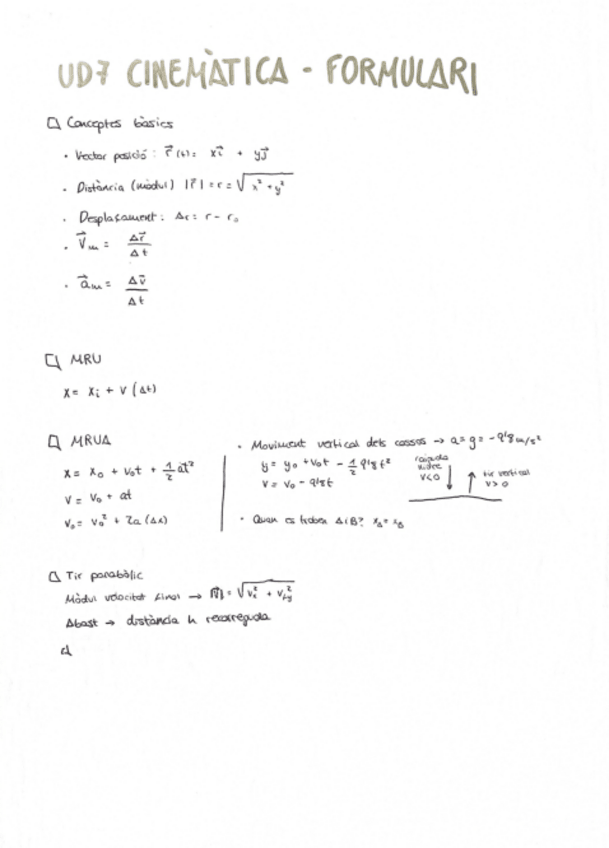 UD7 CINEMÀTICA - FORMULARI
Conceptes bàsics
· Vector posició: r⃗(t) = xi⃗ + yj⃗
· Distància (mòdul) |r⃗| = r = √(x² + y²)
· Desplaçament: Δr = r - r₀
· v⃗m = Δr⃗ / Δt
· a⃗m = Δv⃗ / Δt
MRU
x = xi + v (Δt)
MRUA
x = x₀ + v₀t + 1/2 at²
v = v₀ + at
v₀ = v₀² + 2a (Δx)
· Moviment vertical dels cossos → a = g = -9'8 m/s²
y = y₀ + v₀t - 1/2 9'8 t²
v = v₀ - 9'8t
caiguda lliure
v<0
tir vertical
v>0
· Quan es troben A i B? xA = xB
Tir parabòlic
Mòdul velocitat final → |v⃗| = √(vx² + vfy²)
Abast → distància h recorreguda